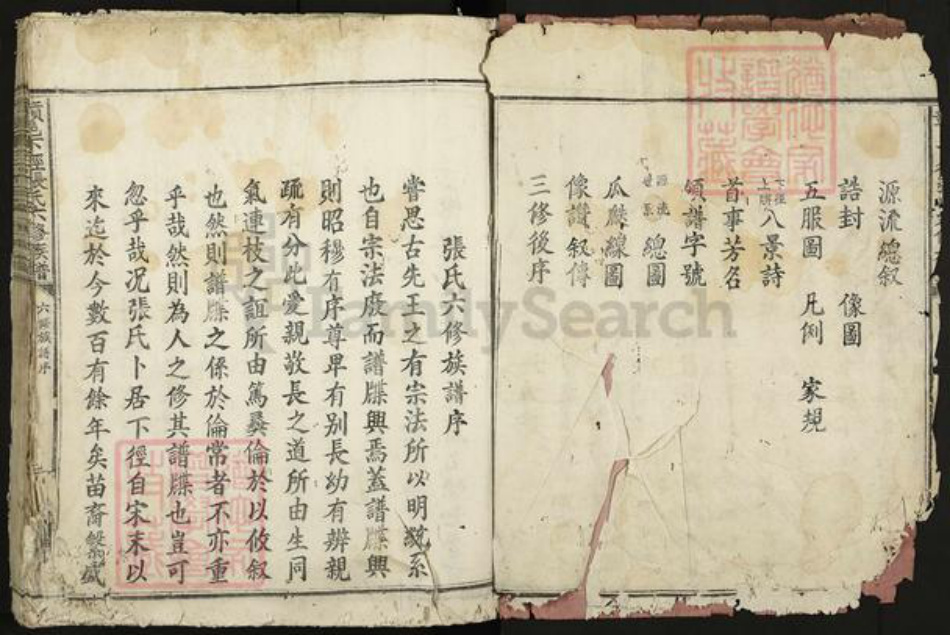 源流總叙
誥封 像圖
五服圖 凡例 家規
八景詩
首事芳名
領譜字號
總圖
瓜瓞線圖
像讚叙傳
三修後序
張氏六修族譜序
嘗思古先王之有宗法所以明統系
也自宗法廢而譜牒興焉蓋譜牒興
則昭穆有序尊卑有别長幼有辨親
疏有分此愛親敬長之道所由生同
氣連枝之誼所由篤彝倫於以攸叙
也然則譜牒之係於倫常者不亦重
乎哉然則為人之修其譜牒也豈可
忽乎哉况張氏卜居下徑自宋末以
來迄於今數百有餘年矣苗裔繁盛
六修族譜序
FamilySearch